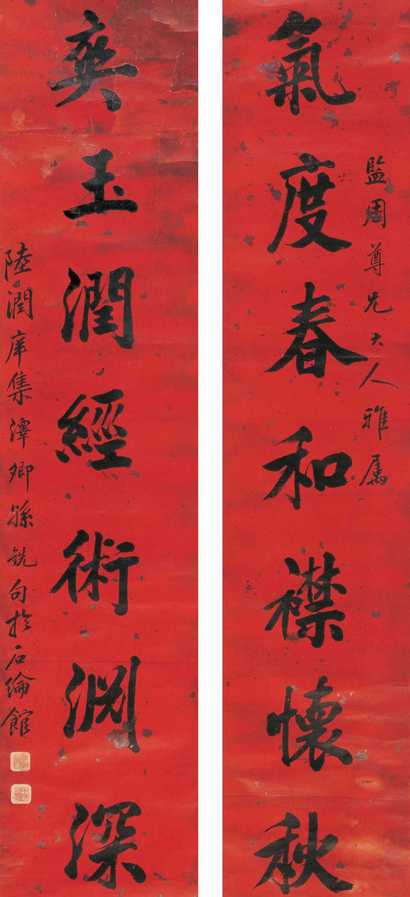 氣度春和襟懷秋
監周尊兄大人雅屬
爽玉潤經術淵深
陸潤庠集潭卿孫銑句於石綸館